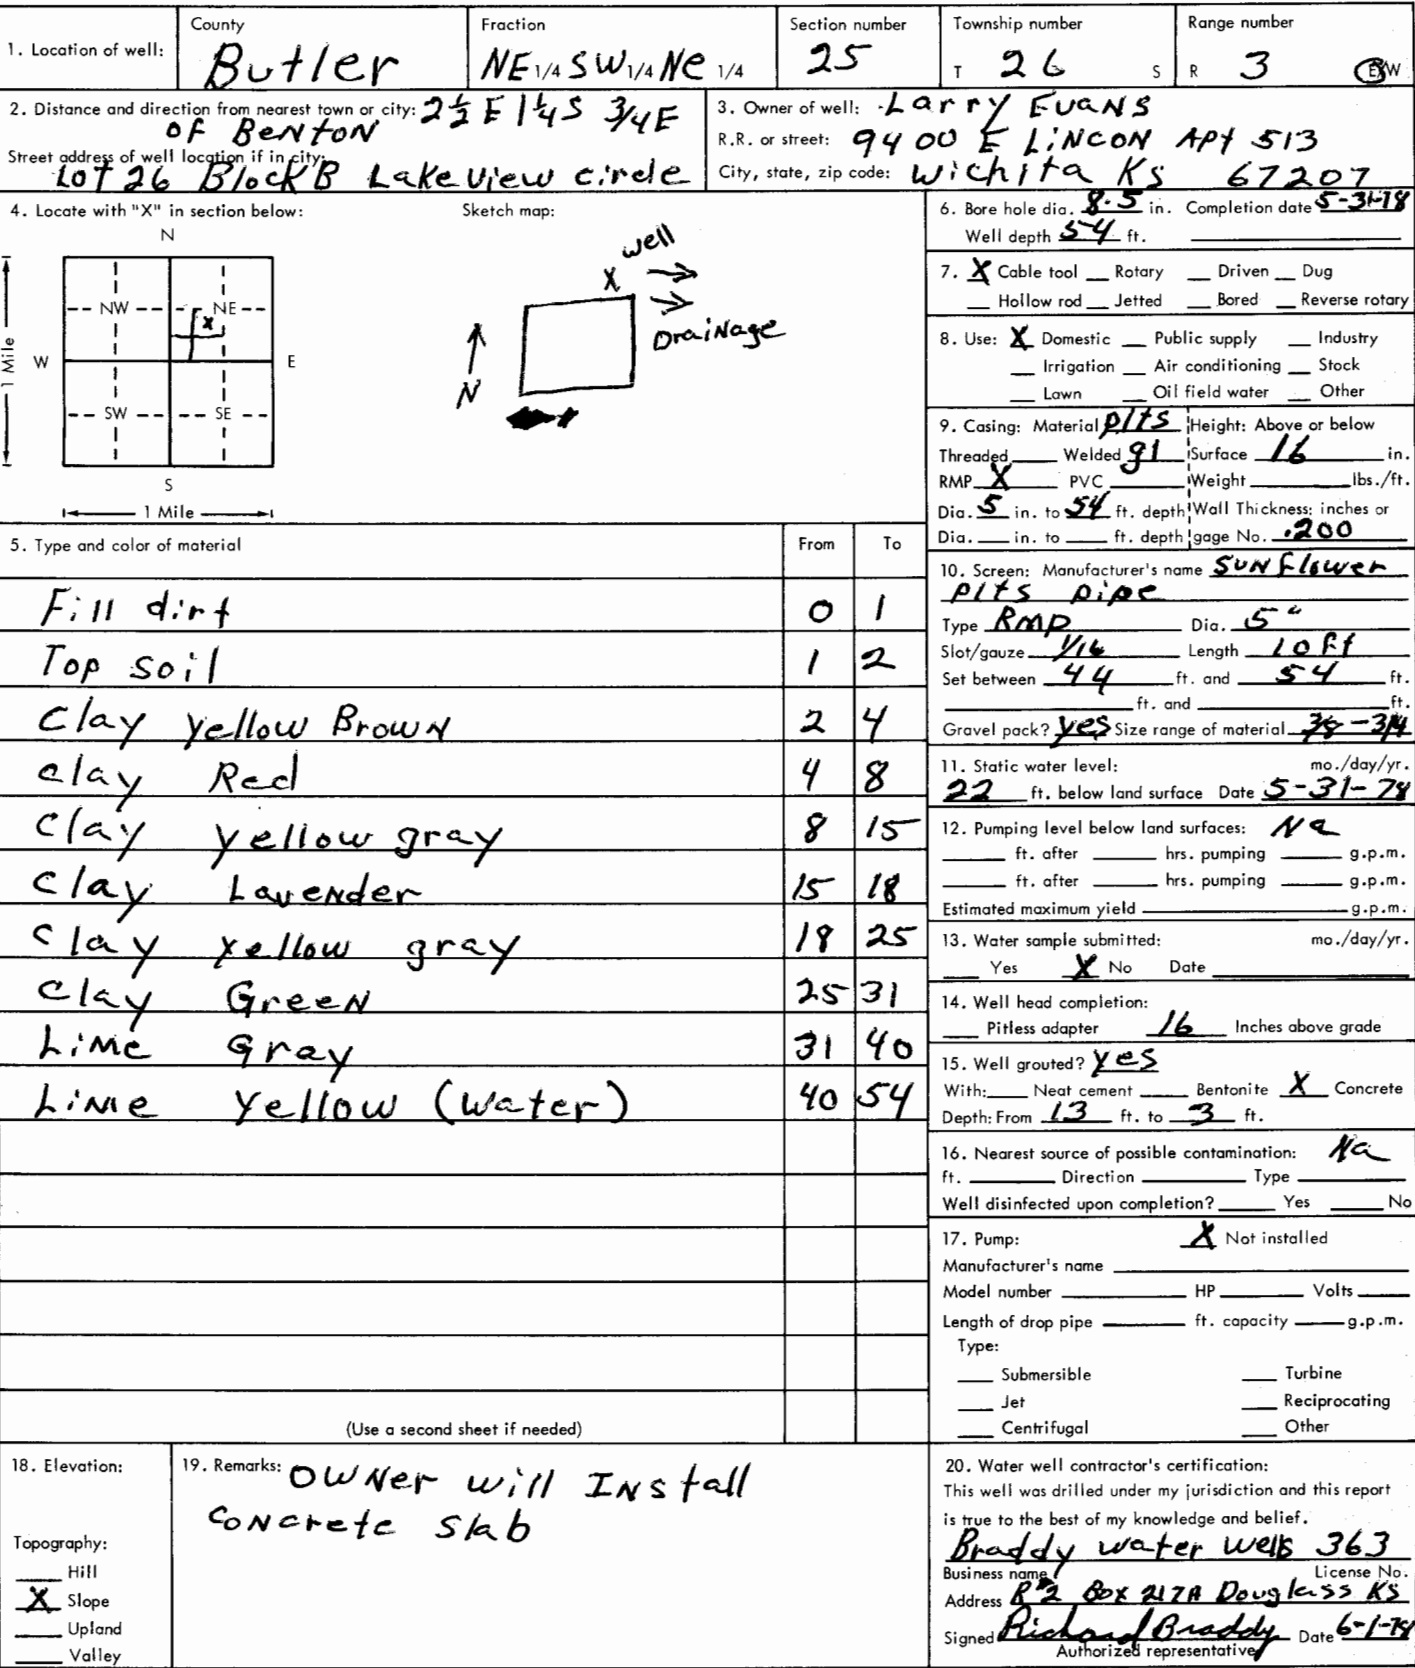 1. Location of well:
County
Butler
Fraction
NE 1/4 SW 1/4 Ne 1/4
Section number
25
Township number
T 26 S
Range number
R 3 E/W
2. Distance and direction from nearest town or city: 2½ E 1¼ S 3/4 E
OF BENTON
Street address of well location if in city:
Lot 26 Block B Lakeview circle
3. Owner of well: Larry Evans
R.R. or street: 9400 E LiNCON APt 513
City, state, zip code: Wichita Ks 67207
4. Locate with "X" in section below:
N
NW NE
X
W E
SW SE
S
1 Mile
1 Mile
Sketch map:
well
X
Drainage
N
5. Type and color of material From To
Fill dirt 0 1
Top soil 1 2
Clay yellow Brown 2 4
clay Red 4 8
Clay yellow gray 8 15
Clay Lavender 15 18
Clay yellow gray 18 25
Clay Green 25 31
Lime Gray 31 40
Lime Yellow (water) 40 54
(Use a second sheet if needed)
6. Bore hole dia. 8.5 in. Completion date 5-31-78
Well depth 54 ft.
7. X Cable tool Rotary Driven Dug
Hollow rod Jetted Bored Reverse rotary
8. Use: X Domestic Public supply Industry
Irrigation Air conditioning Stock
Lawn Oil field water Other
9. Casing: Material plts Height: Above or below
Threaded Welded gl Surface 16 in.
RMP X PVC Weight lbs./ft.
Dia. 5 in. to 54 ft. depth Wall Thickness: inches or
Dia. in. to ft. depth gage No. .200
10. Screen: Manufacturer's name Sunflower
plts pipe
Type RMP Dia. 5"
Slot/gauze 1/16 Length 10 ft
Set between 44 ft. and 54 ft.
ft. and ft.
Gravel pack? yes Size range of material 3/8 - 3/4
11. Static water level: mo./day/yr.
22 ft. below land surface Date 5-31-78
12. Pumping level below land surfaces: Na
ft. after hrs. pumping g.p.m.
ft. after hrs. pumping g.p.m.
Estimated maximum yield g.p.m.
13. Water sample submitted: mo./day/yr.
Yes X No Date
14. Well head completion:
Pitless adapter 16 Inches above grade
15. Well grouted? yes
With: Neat cement Bentonite X Concrete
Depth: From 13 ft. to 3 ft.
16. Nearest source of possible contamination: Na
ft. Direction Type
Well disinfected upon completion? Yes No
17. Pump: X Not installed
Manufacturer's name
Model number HP Volts
Length of drop pipe ft. capacity g.p.m.
Type:
Submersible Turbine
Jet Reciprocating
Centrifugal Other
18. Elevation:
Topography:
Hill
X Slope
Upland
Valley
19. Remarks: OWNer will INstall
CONcrete slab
20. Water well contractor's certification:
This well was drilled under my jurisdiction and this report
is true to the best of my knowledge and belief.
Braddy water wells 363
Business name License No.
Address R#2 Box 217A Douglass KS
Signed Richard Braddy Date 6-1-78
Authorized representative